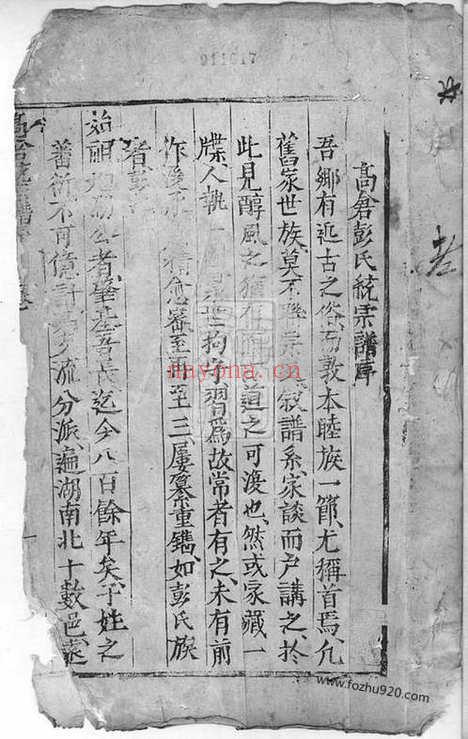 911017
高倉彭氏統宗譜序
吾鄉有近古之俗而敦本睦族一節尤稱首焉凡
舊家世族莫不 宗 敘譜系家談而戶講之於
此見醇風之猶 道之可復也然或家藏一
牒人執一 拘守習爲故常者有之未有前
作後承 精愈審至再至三屢纂重鐫如彭氏族
者
始祖 公者肇基吾 迄今八百餘年矣子姓之
蕃衍不可億計 流分派遍湖南北十數邑
nayona.cn
www.fozhu920.com